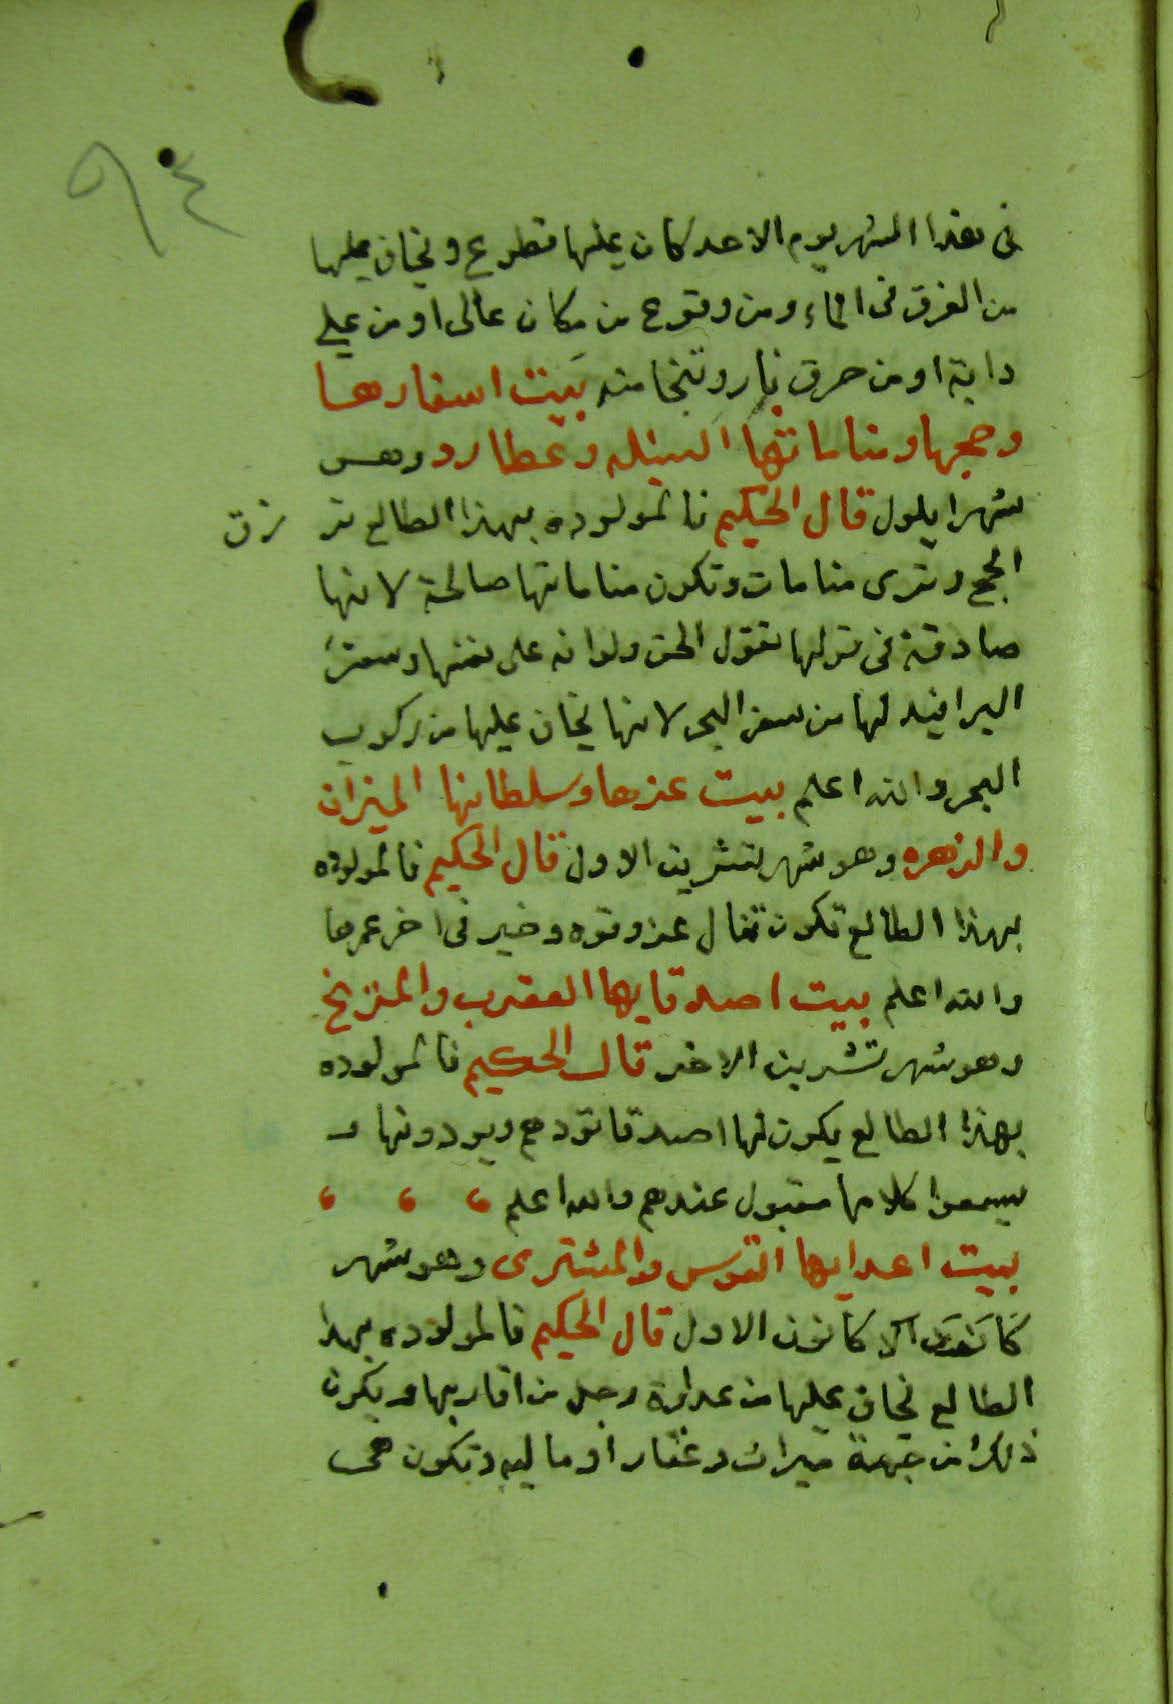 ٩٤
فى هذا الشهر يوم الاحد كان عليها قطوع ويخاف عليها
من الغرق فى الماء ومن وقوع من مكان عالى او من على
دابة او من حرق بنار وتنجا منه بيت اسفارها
وحجها ومناماتها السنبله وعطارد وهو
شهر ايلول قال الحكيم فالمولوده بهذا الطالع تر زق
الحج وترى منامات وتكون مناماتها صالحة لانها
صادقة فى قولها تقول الحق ولوانه على نفسها وسفر
البر افيد لها من سفر البحر لانها يخاف عليها من ركوب
البحر والله اعلم بيت عزها وسلطانها الميزان
والزهره وهو شهر تشرين الاول قال الحكيم فالمولوده
بهذا الطالع تكون تنال عز وقوه وخير فى اخر عمرها
والله اعلم بيت اصدقايها العقرب والمريخ
وهو شهر تشرين الاخر قال الحكيم فالمولوده
بهذا الطالع يكون لها اصدقا تودهم ويودونها و
يسمعوا كلامها مقبول عندهم والله اعلم
بيت اعدايها القوس والمشترى وهو شهر
كانون الاول قال الحكيم فالمولوده بهذا
الطالع يخاف عليها من عداوة رجل من اقاربها ويكون
ذلك من جهة ميراث وعقار او ماليه وتكون هى